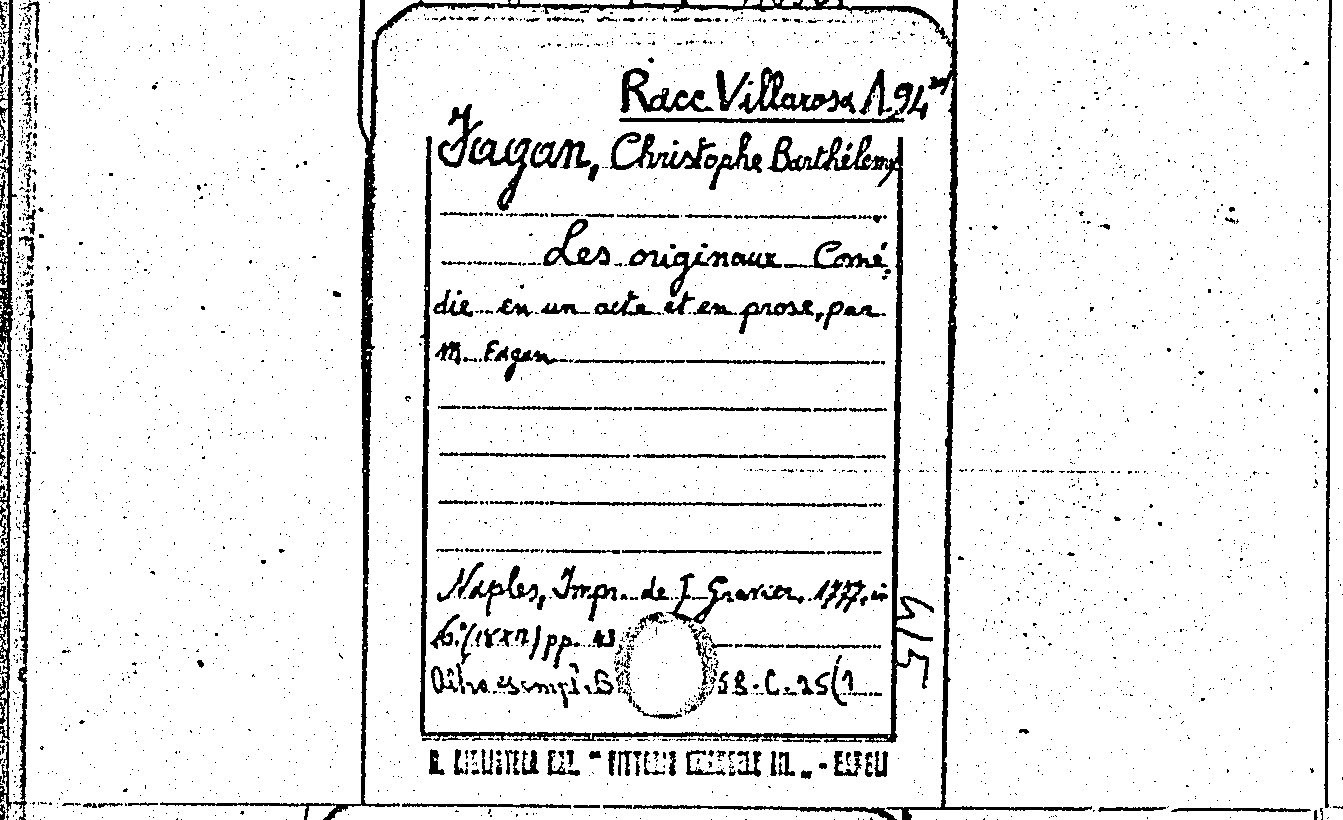 Racc. Villarosa A 94
Fagan, Christophe Barthélemy
Les originaux Comé-
die en un acte et en prose, par
M. Fagan
Naples, Impr. de J. Gravier, 1777, in
16.° (18x11) pp. 43
Altro esempl. B 58.C.25(1
R. BIBLIOTECA NAZ. " VITTORIO EMANUELE III. „ - NAPOLI